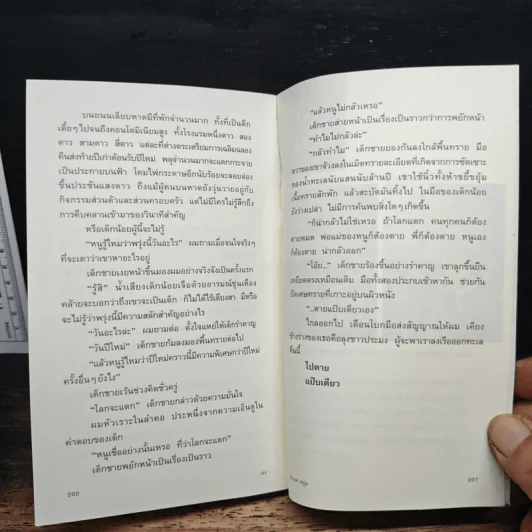 บนถนนเลียบหาดมีที่พักจำนวนมาก ทั้งที่เป็นตึก
เตี้ยๆ ไปจนถึงคอนโดมิเนียมสูง ทั้งโรงแรมหนึ่งดาว สอง
ดาว สามดาว สี่ดาว แต่ละที่ต่างตระเตรียมการเฉลิมฉลอง
คืนส่งท้ายปีเก่าต้อนรับปีใหม่ พลุจำนวนมากจะแตกกระจาย
เป็นประกายบนฟ้า โคมไฟกระดาษอีกนับร้อยจะลอยล่อง
ขึ้นประชันแสงดาว ถึงแม้ผู้คนบนหาดยังวุ่นวายอยู่กับ
กิจกรรมส่วนตัวและส่วนครอบครัว แต่ไม่มีใครไม่รู้สึกถึง
การคืบคลานเข้ามาของวินาทีสำคัญ
หรือเด็กน้อยผู้นี้จะไม่รู้
"หนูรู้ไหมว่าพรุ่งนี้วันอะไร" ผมถามเมื่อจนใจจริงๆ
ที่จะเดาว่าเขาหาอะไรอยู่
เด็กชายเงยหน้าขึ้นมองผมอย่างจริงจังเป็นครั้งแรก
"รู้สิ" น้ำเสียงเด็กน้อยเจือด้วยอารมณ์ขุ่นเคือง
คล้ายจะบอกว่าถึงเขาจะเป็นเด็ก ก็ไม่ได้ไร้เดียงสา มีหรือ
จะไม่รู้ว่าพรุ่งนี้มีความสลักสำคัญอย่างไร
"วันอะไรล่ะ" ผมถามต่อ ตั้งใจแหย่ให้เด็กรำคาญ
"วันปีใหม่" เด็กชายก้มลงมองพื้นทรายต่อไป
"แล้วหนูรู้ไหมว่าปีใหม่คราวนี้มีความพิเศษกว่าปีใหม่
ครั้งอื่นๆ ยังไง"
เด็กชายเว้นช่วงคิดชั่วครู่
"โลกจะแตก" เด็กชายกล่าวด้วยความมั่นใจ
ผมหัวเราะในลำคอ ประหนึ่งจากความเอ็นดูใน
คำตอบของเด็ก
"หนูเชื่ออย่างนั้นเหรอ ที่ว่าโลกจะแตก"
เด็กชายพยักหน้าเป็นเรื่องเป็นราว
200
"แล้วหนูไม่กลัวเหรอ"
เด็กชายส่ายหน้าเป็นเรื่องเป็นราวกว่าการพยักหน้า
"ทำไมไม่กลัวล่ะ"
"กลัวทำไม" เด็กชายยองก้นลงใกล้พื้นทราย มือ
ขวาของเขาจ้วงลงในเม็ดทรายละเอียดที่เกิดจากการซัดเซาะ
ของน้ำทะเลนับแสนนับล้านปี เขาใช้นิ้วทั้งห้าขยี้ขยุ้ม
เนื้อทรายสักพัก แล้วสะบัดมันทิ้งไป ในมือของเด็กน้อย
ยังว่างเปล่า ไม่มีการค้นพบสิ่งใดๆ เกิดขึ้น
"ก็น่ากลัวไม่ใช่เหรอ ถ้าโลกแตก คนทุกคนก็ต้อง
ตายหมด พ่อแม่ของหนูก็ต้องตาย พี่ก็ต้องตาย หนูเอง
ก็ต้องตาย น่ากลัวออก"
"โอ๊ย..." เด็กชายร้องขึ้นอย่างรำคาญ เขาลุกขึ้นยืน
เหยียดตรงเหมือนเดิม มือทั้งสองประกบเข้าหากัน ช่วยกัน
ปัดเศษทรายที่เกาะอยู่บนผิวหนัง
"...ตายแป๊บเดียวเอง"
ไกลออกไป เดือนโบกมือส่งสัญญาณให้ผม เคียง
ข้างร่างของเธอคือลุงชาวประมง ผู้จะพาเราลงเรือออกทะเล
คืนนี้
ไปตาย
แป๊บเดียว
201